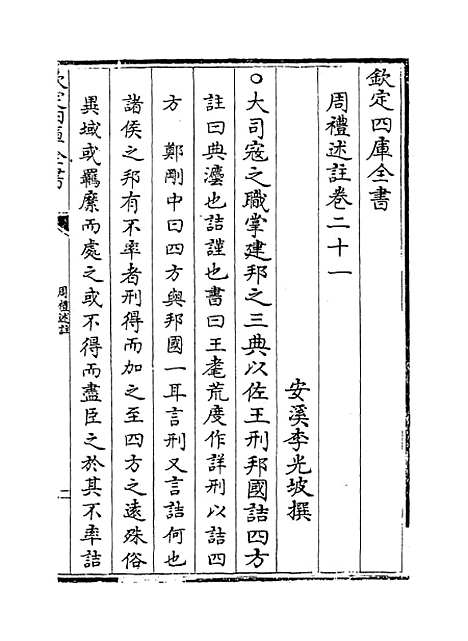 欽定四庫全書
周禮述註卷二十一
安溪李光坡撰
○大司寇之職掌建邦之三典以佐王刑邦國詰四方
註曰典灋也詰謹也書曰王耄荒度作詳刑以詰四
方　鄭剛中曰四方與邦國一耳言刑又言詰何也
諸侯之邦有不率者刑得而加之至四方之遠殊俗
異域或羈縻而處之或不得而盡臣之於其不率詰
欽定四庫全書
周禮述註
一